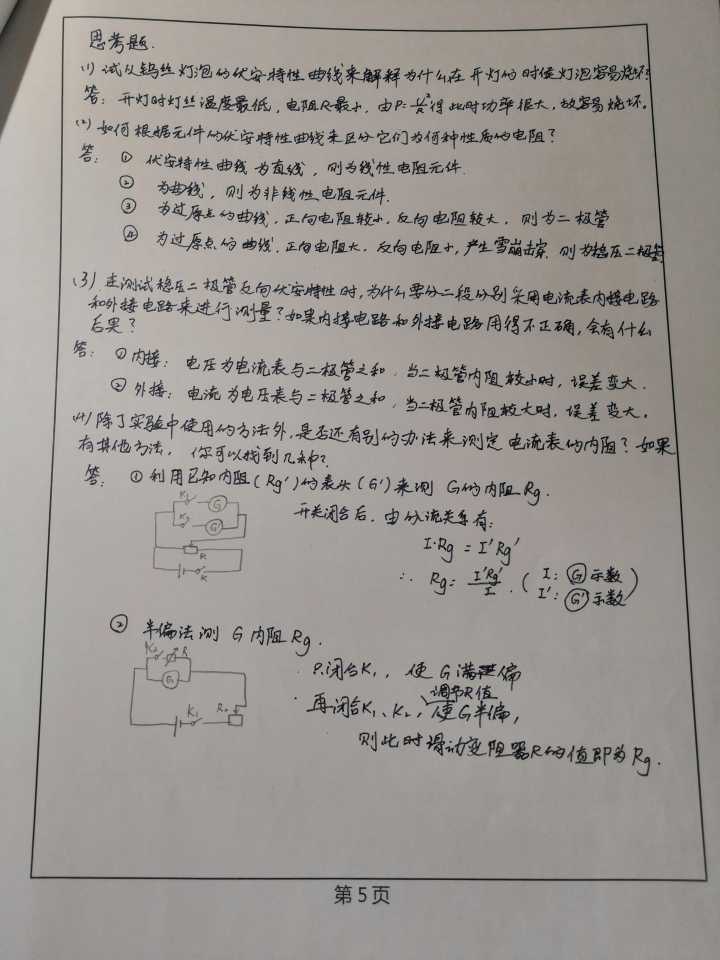 思考题.
(1) 试从钨丝灯泡的伏安特性曲线来解释为什么在开灯的时候灯泡容易烧坏?
答: 开灯时灯丝温度最低,电阻R最小,由P=U²/R得此时功率很大,故容易烧坏。
(2) 如何根据元件的伏安特性曲线来区分它们为何种性质的电阻?
答: ① 伏安特性曲线为直线,则为线性电阻元件.
② 为曲线,则为非线性电阻元件.
③ 为过原点的曲线,正向电阻较小,反向电阻较大,则为二极管
④ 为过原点的曲线,正向电阻大,反向电阻小,产生雪崩击穿,则为稳压二极管
(3) 在测试稳压二极管反向伏安特性时,为什么要分二段分别采用电流表内接电路
和外接电路来进行测量?如果内接电路和外接电路用得不正确,会有什么
后果?
答: ① 内接: 电压为电流表与二极管之和,当二极管内阻较小时,误差变大.
② 外接: 电流为电压表与二极管之和,当二极管内阻较大时,误差变大.
(4) 除了实验中使用的方法外,是否还有别的办法来测定电流表的内阻?如果
有其他方法,你可以找到几种?
答: ① 利用已知内阻(Rg')的表头(G')来测G的内阻Rg.
K₁ G
K₂ G'
R
K
开关闭合后,由分流关系有:
I·Rg = I'Rg'
∴ Rg = I'Rg'/I . (I: G示数
I': G'示数)
② 半偏法测G内阻Rg.
K₂ R
G
K₁ R₀
只闭合K₁, 使G满偏
调节R值
再闭合K₁、K₂, 使G半偏,
则此时滑动变阻器R的值即为Rg.
第5页